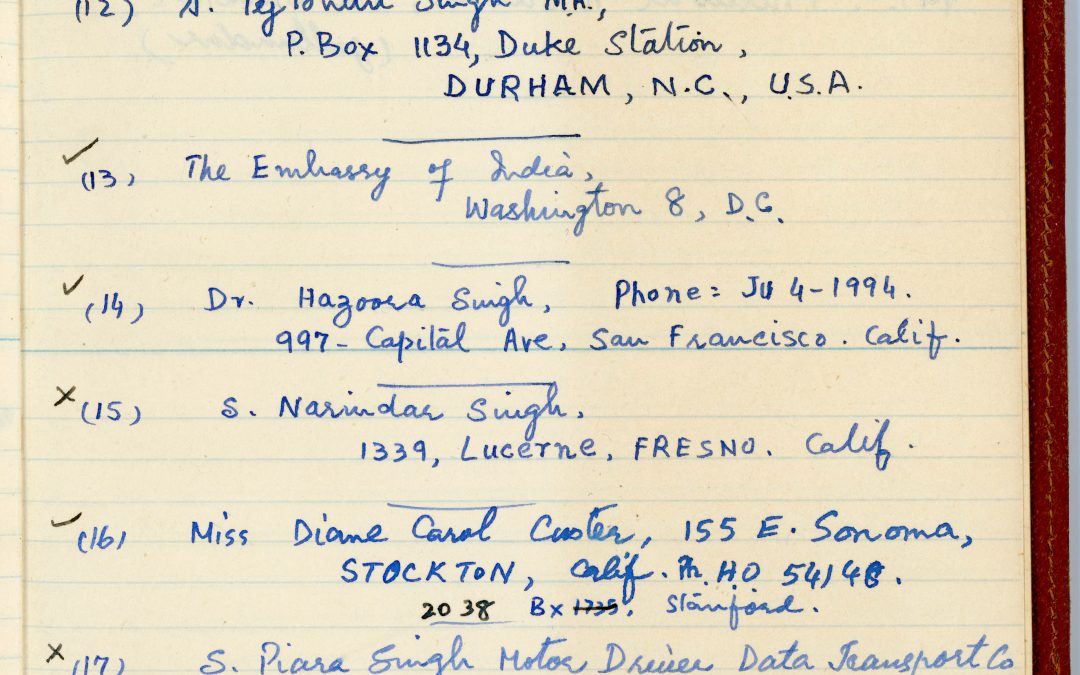 (12) S. Tejbhan Singh M.A.,
P. Box 1134, Duke Station,
DURHAM, N.C., U.S.A.
✓ (13) The Embassy of India,
Washington 8, D.C.
✓ (14) Dr. Hazoora Singh, Phone: JU 4-1994.
997- Capital Ave, San Francisco. Calif.
× (15) S. Narindar Singh,
1339, Lucerne, FRESNO. Calif.
✓ (16) Miss Diane Carol Custer, 155 E. Sonoma,
STOCKTON, Calif. Ph. H.O 54146.
2038 Bx 1735. Stanford.
× (17) S. Piara Singh Motor Driver Data Transport Co